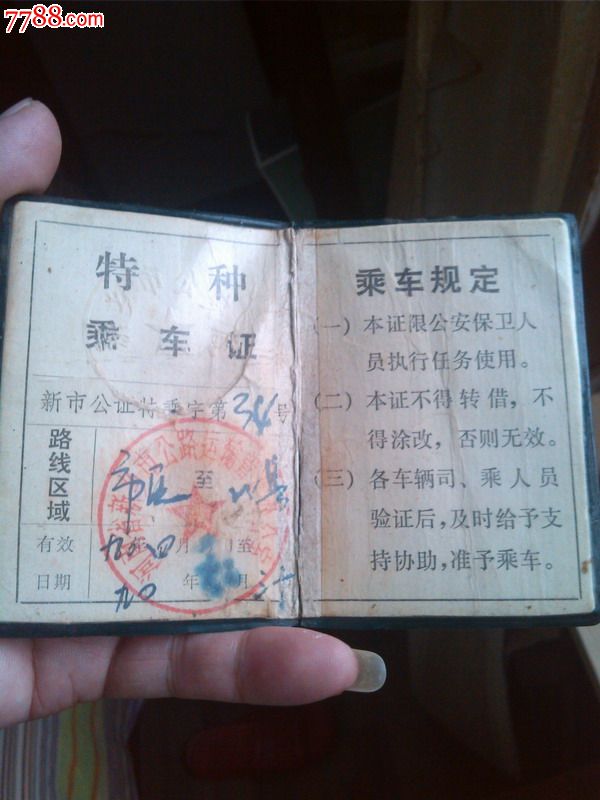 7788.com
特 种
乘 车 证
新市公证特乘字第 号
路线区域
市区 至 八县
有效
日期
九〇 年 四 月 日至
九〇 年 月 日
乘车规定
(一) 本证限公安保卫人
员执行任务使用。
(二) 本证不得转借，不
得涂改，否则无效。
(三) 各车辆司、乘人员
验证后，及时给予支
持协助，准予乘车。